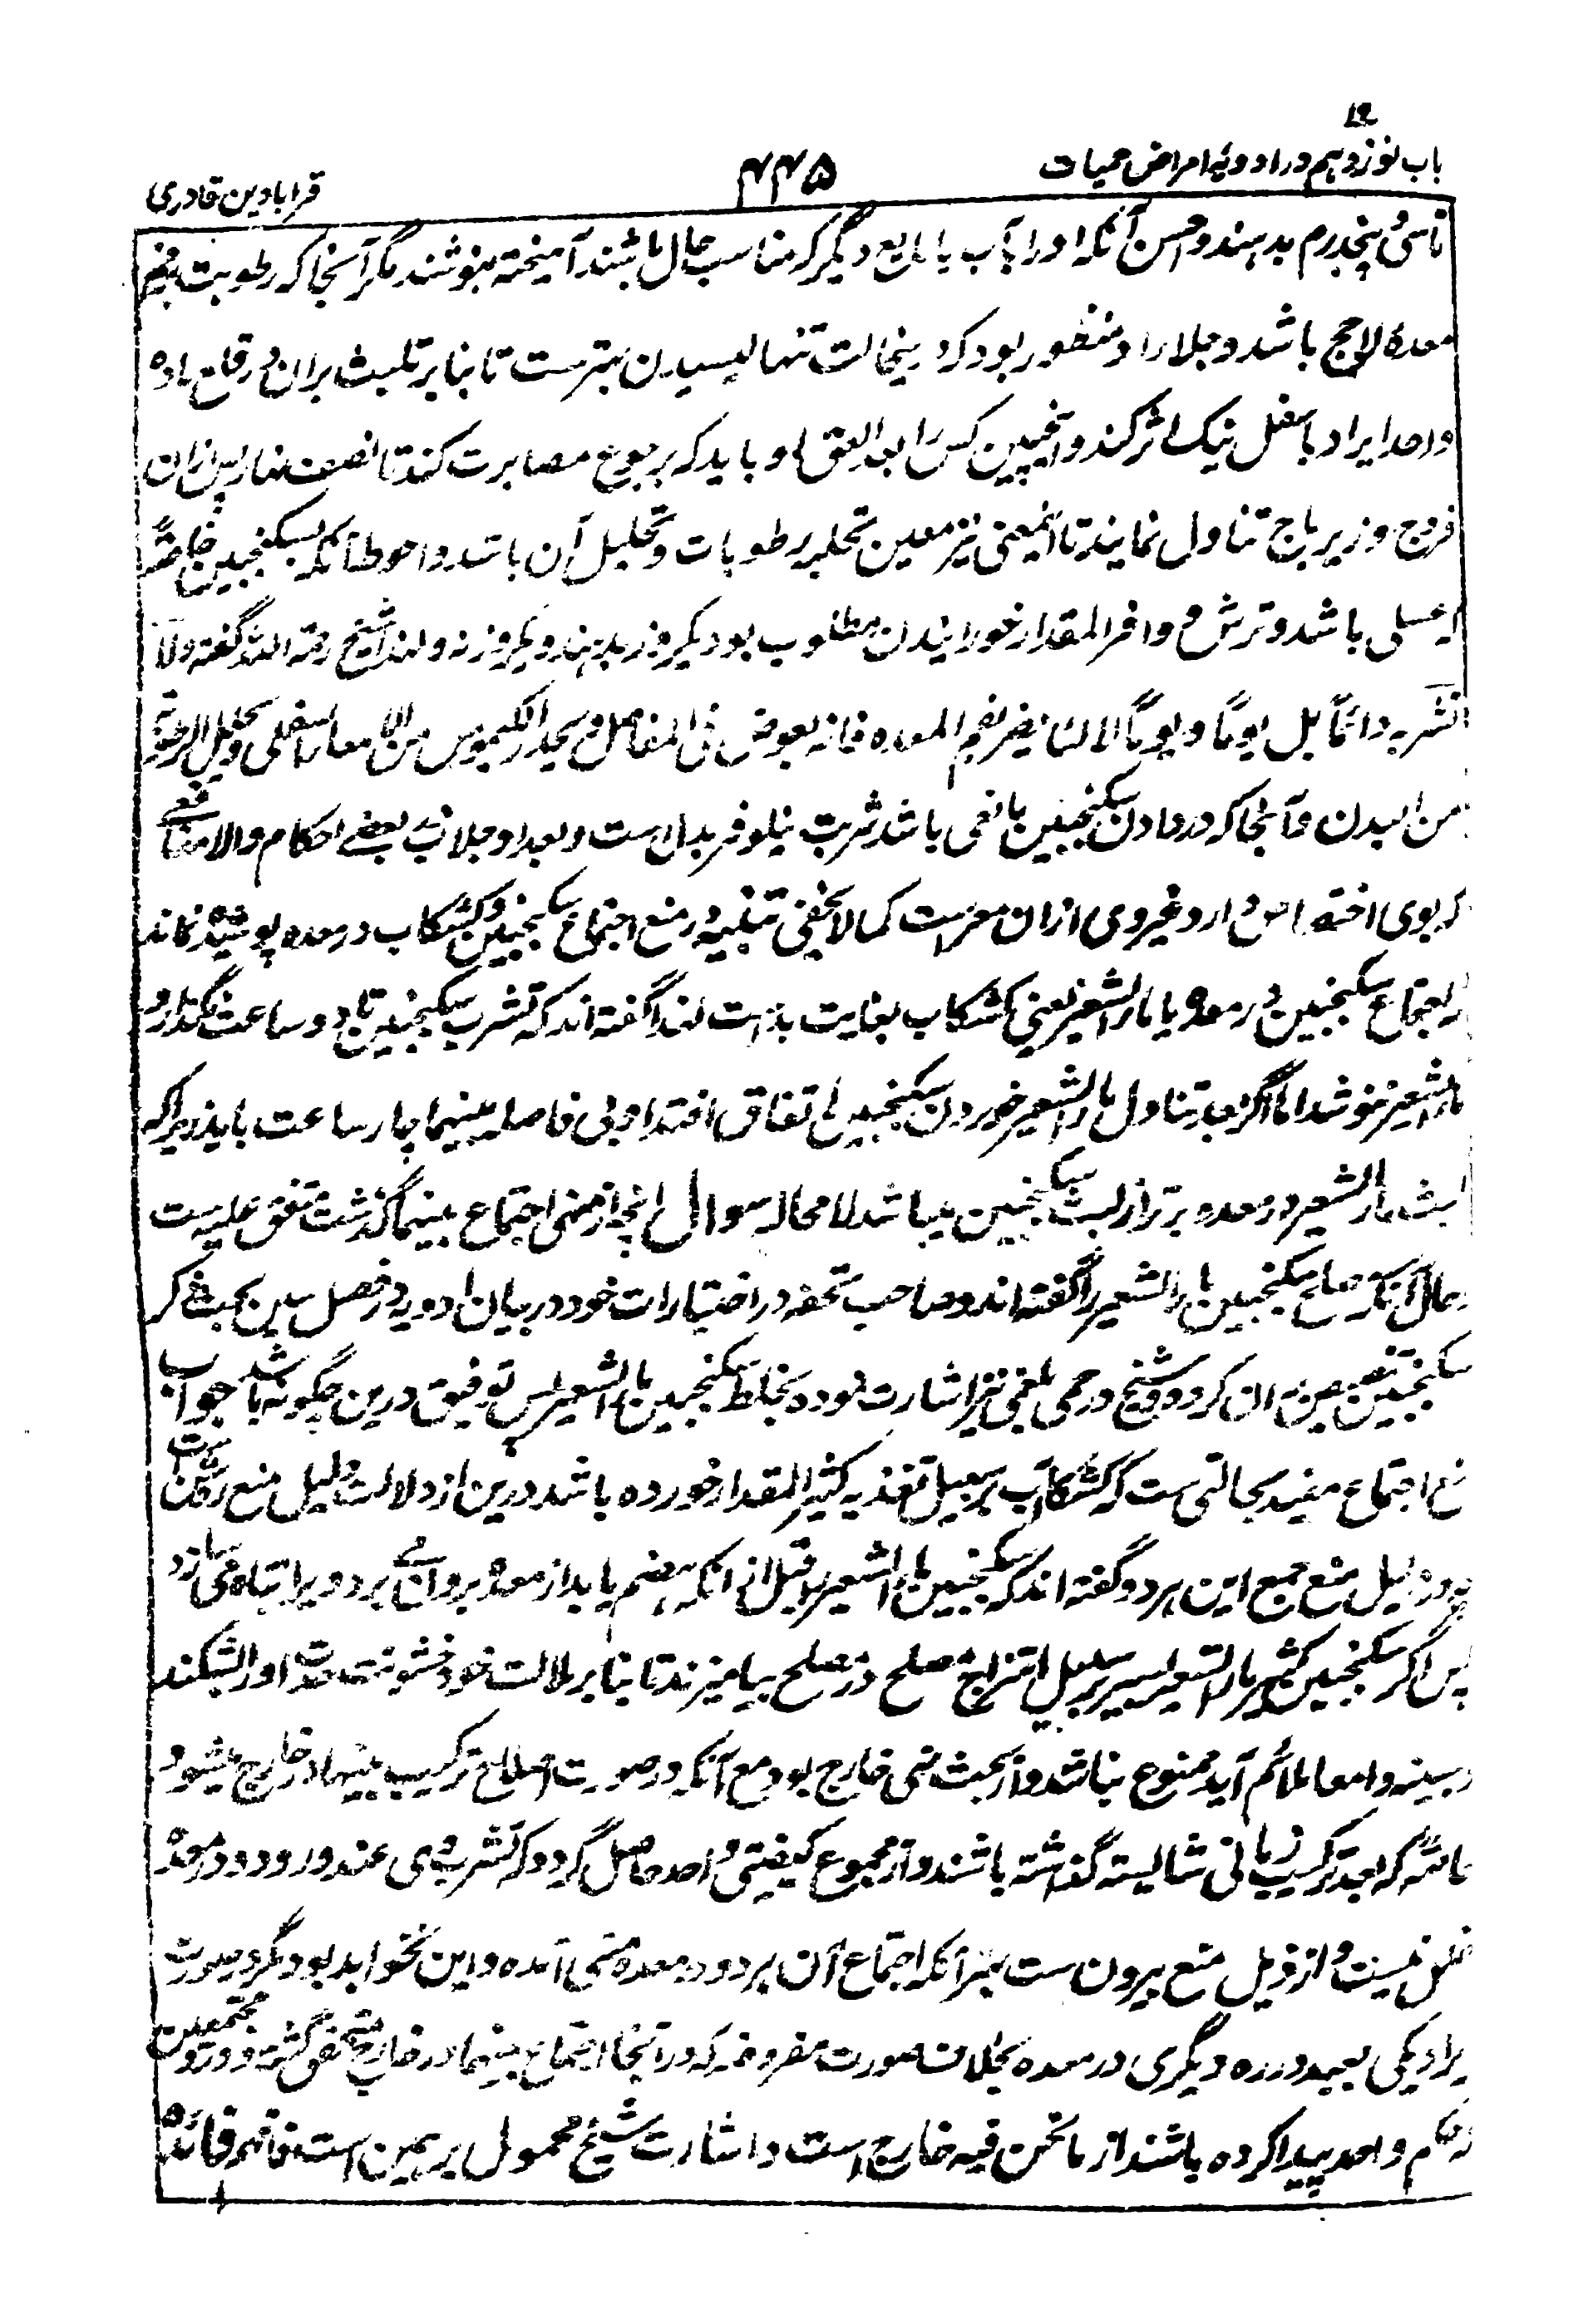 ۱۹
باب نوزدہم در ادویہ امراض حمیات
۴۴۵
قرابادین قادری
تا سی پنجدرم بدہند و احسن آنکہ او را بآب یا مایع دیگر کہ مناسب حال باشد آمیختہ بنوشند مگر آنجا کہ رطوبت بفم
معدہ لاحج باشد و جلا را و منظور بود کہ درینحالت تنہا لیسیدن بہترست تا بنابر تلبث بران در قلع مادہ
و احدار او باسفل نیک اثر کند و اینچنین کس را بعد لعق او باید کہ بر جوع مصابرت کند تا نصف نہار پس ازان
فروج و زیرباج تناول نمایند تا اینمعنی نیز معین تحلب رطوبات و تحلیل آن باشد و احوط آنکہ سکنجبین خاصۃ
کہ عسلی باشد و ترش و وافر المقدار خورانیدن مطلوب بود یکروز بدہند و یکروز نہ و لہذا شیخ رحمۃ اللہ گفتہ ولا
تشربہ دائماً بل یوماً و یوماً لا لئلا یضر بفم المعدہ فانہ یعوض فی المفاصل و یحدر الکیموس من الامعاء السفلی و یحلل الرطوبۃ
من البدن و آنجا کہ در دادن سکنجبین مانعی باشد شربت نیلوفر بدل است و بعد او جلاب فی بعضے احکام والا منافعے
کہ بوی اختصاص دارد غیر وی ازان معراست کما لا یخفی تنبیہ در منع اجتماع سکنجبین و کشکاب در معدہ پوشیدہ نماند
کہ اجتماع سکنجبین در معدہ با ماء الشعیر یعنی کشکاب بغایت بدست لہذا گفتہ اند کہ تشرب سکنجبین تا دو ساعت نگذارد
ماء الشعیر ننوشد اما اگر بعد تناول ماء الشعیر خوردن سکنجبین اتفاق افتد ادنی فاصلہ بینہما چار ساعت باید زیرا کہ
لبث ماء الشعیر در معدہ برتر از لبث سکنجبین میباشد لا محالہ سوال انچہ از منہی اجتماع بینہما گذشت متفق علیہ ست
و حال آنکہ مصلح سکنجبین ماء الشعیر را گفتہ اند و صاحب تحفہ در اختیارات خود در بیان ادویہ در فصل سین بحث ذکر
سکنجبین تنصیص بران کردہ و شیخ در حمی بلغمی نیز اشارت نمودہ بخلط سکنجبین با ماء الشعیر پس توفیق درین چگونہ باشد جواب
منع اجتماع مفید بحالتی ست کہ کشکاب بر سبیل تغذیہ کثیر المقدار خوردہ باشد و درین از دلالت دلیل منع روشن ست
چہ در دلیل منع جمع این ہر دو گفتہ اند کہ سکنجبین ماء الشعیر را قبل از انکہ ہضم یابد از معدہ برو آنے برد و ویرا تباہ می سازد
پس اگر سکنجبین کثیر با ماء الشعیر یسیر بر سبیل امتزاج مصلح در مصلح بیامیزند تا بنابر ملالت خود خشونت حدت او را بشکند
و بسینہ و امعا ملائم آید ممنوع نباشد و از بحث نہی خارج بود مع آنکہ در صورت اصلاح ترکیب بینہما در خارج میشود
خاصۃ کہ بعد ترکیب زمانی شایستہ گذشتہ باشند و از مجموع کیفیتی واحد حاصل گردد کہ تشرب وی عند ورود در معدہ
مخل نیست و از ذیل منع بیرون ست بجز آنکہ اجتماع آن ہر دو در معدہ منہی آمدہ و این نخواہد بود مگر در صورت
ایراد یکی بعید ورود دیگری در معدہ بخلاف صورت مفروضہ کہ در آنجا اجتماع بینہما در خارج متحقق گشتہ و ورود مجتمعین
کہ حکم واحد پیدا کردہ باشند از ما نحن فیہ خارج است و اشارت شیخ محمول بر ہمین است فافہم فائدہ